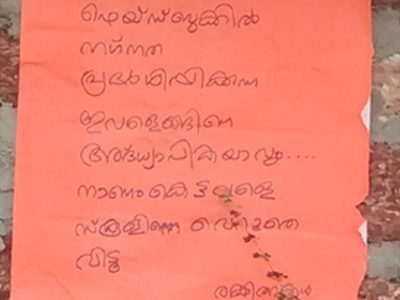 ഫെയ്സ്ബുക്കിൽ
നഗ്നത
പ്രദർശിപ്പിക്കുന്ന
ഇവളെങ്ങിനെ
അദ്ധ്യാപികയാവും....
നാണംകെട്ടവളെ
സ്കൂളിൽ
വിട്ടു
രക്ഷിതാക്കൾ